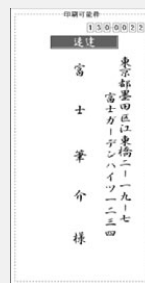 印刷可能券
1500022
速達
東京都墨田区江東橋二ー一九ー七
富士ガーデンハイツ一二三四
富士筆介様